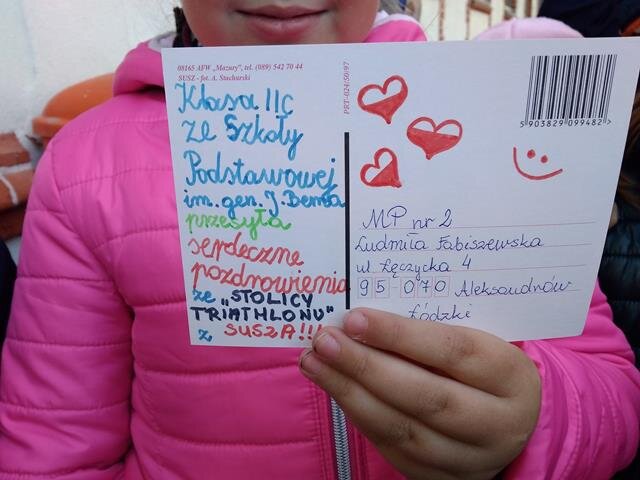 08165 AFW „Mazury”, tel. (089) 542 70 44
SUSZ - fot. A. Stachurski
PRT-024/50/97
5 903829 099482 >
Klasa IIc
ze Szkoły
Podstawowej
im. gen. J. Bema
przesyła
serdeczne
pozdrowienia
ze „STOLICY
TRIATHLONU”
z SUSZA!!!
MP nr 2
Ludmiła Fabiszewska
ul Łęczycka 4
95-070 Aleksandrów
Łódzki